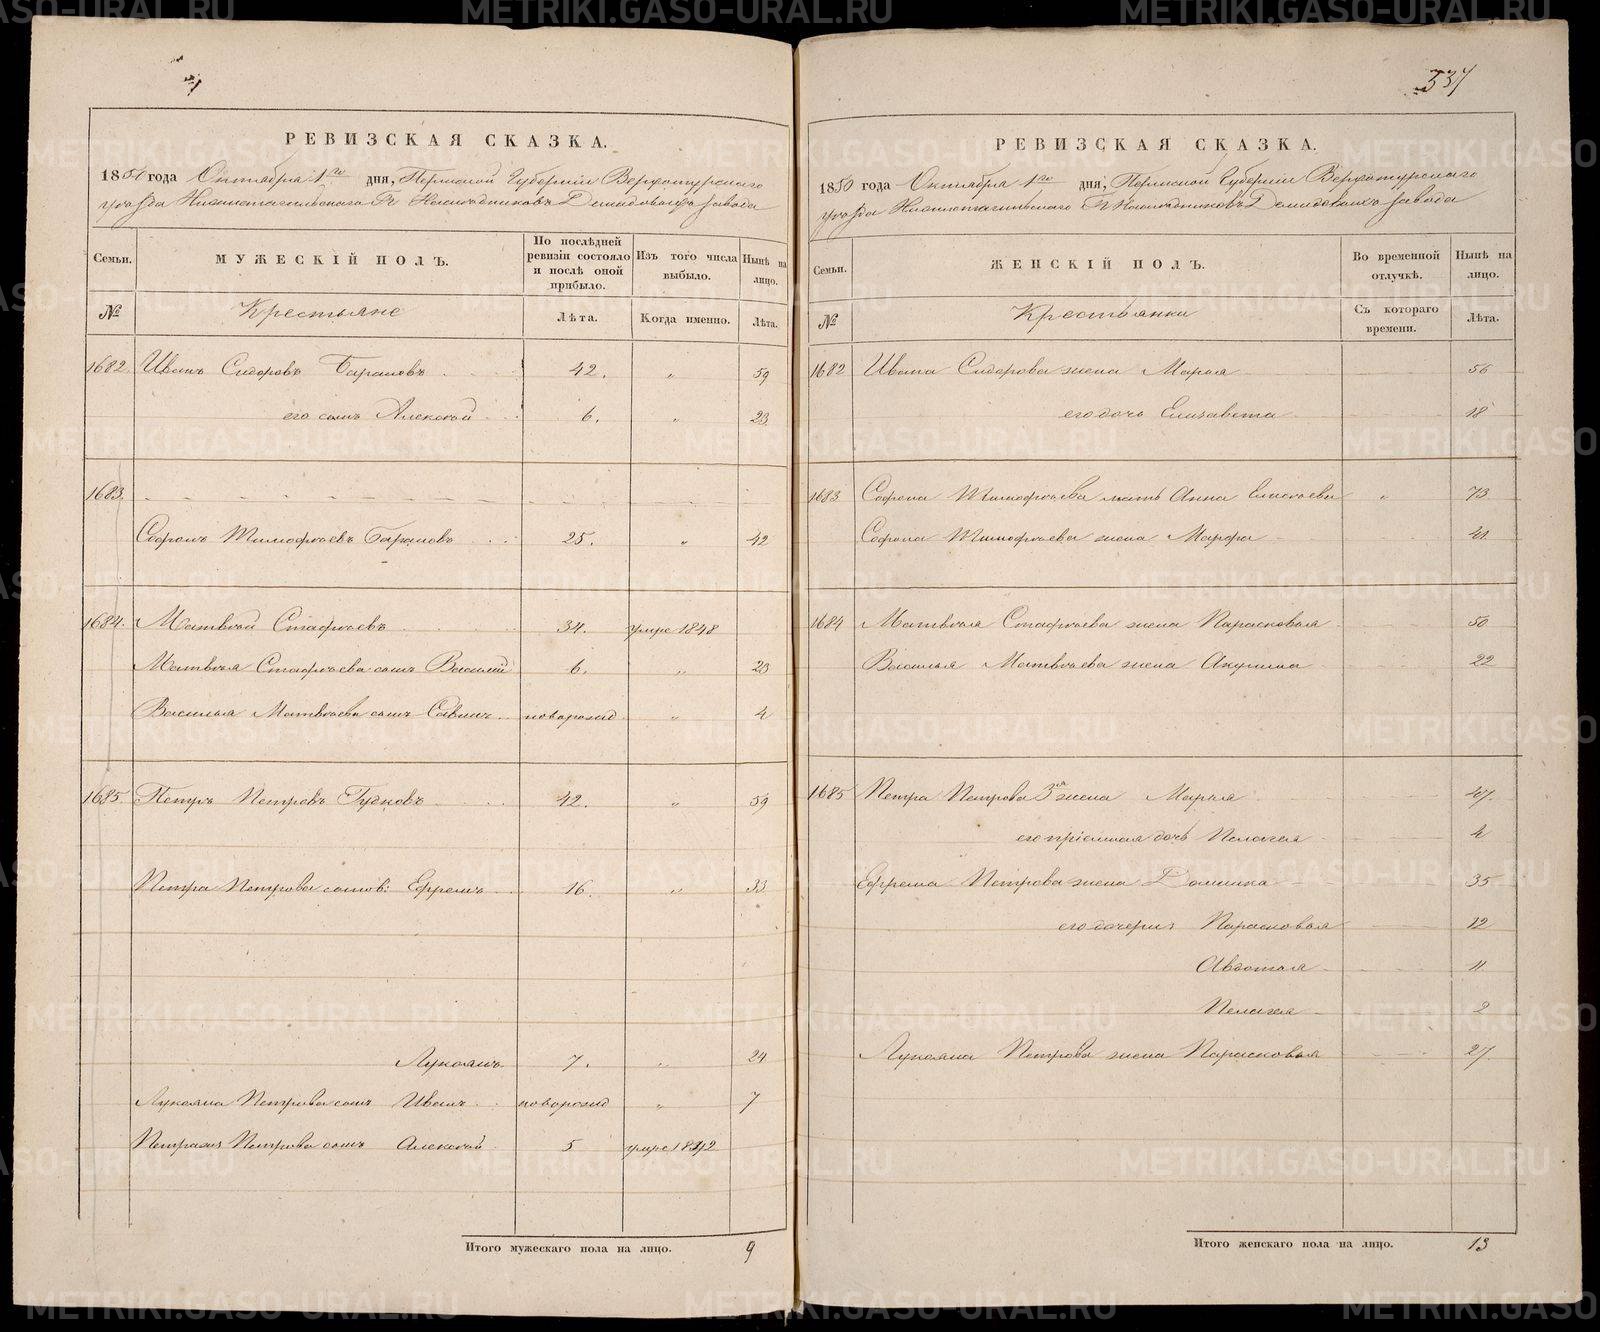 337
РЕВИЗСКАЯ СКАЗКА.
1850 года Октября 1го дня, Пермской Губернии Верхотурскаго
уѣзда Нижнетагильскаго Гг. Наслѣдниковъ Демидовыхъ завода
Семьи. МУЖЕСКІЙ ПОЛЪ. По послѣдней ревизіи состояло и послѣ оной прибыло. Изъ того числа выбыло. Нынѣ на лицо.
№ Крестьяне Лѣта. Когда именно. Лѣта.
1682. Иванъ Сидоровъ Барановъ 42. „ 59
его сынъ Алексѣй 6. „ 23
1683.
Софонъ Тимофѣевъ Барановъ 25. „ 42
1684. Матвѣй Стафѣевъ 34. умре 1848
Матвѣя Стафѣева сынъ Василій 6. „ 23
Василья Матвѣева сынъ Савинъ новорожд „ 4
1685. Петръ Петровъ Гудковъ 42. „ 59
Петра Петрова сынов: Ефремъ 16. „ 33
Лукоянъ 7. „ 24
Лукояна Петрова сынъ Иванъ новорожд „ 7
Петра Петрова сынъ Алексѣй 5 умре 1842
Итого мужескаго пола на лицо. 9
РЕВИЗСКАЯ СКАЗКА.
1850 года Октября 1го дня, Пермской Губерніи Верхотурскаго
уѣзда Нижнетагильскаго Гг. Наслѣдниковъ Демидовыхъ завода
Семьи. ЖЕНСКІЙ ПОЛЪ. Во временной отлучкѣ. Нынѣ на лицо.
№ Крестьянки Съ котораго времени. Лѣта.
1682 Ивана Сидорова жена Марья 56
его дочь Елизавета 18
1683 Софона Тимофѣева мать Анна Елисѣева „ 73
Софона Тимофѣева жена Марфа 41.
1684 Матвѣя Стафѣева жена Парасковья 50
Василья Матвѣева жена Акулина 22
1685 Петра Петрова 3я жена Марья 47.
его пріемная дочь Пелагея 4
Ефрема Петрова жена Домника 35
его дочери: Парасковья 12
Авдотья 11
Пелагея 2
Лукояна Петрова жена Парасковья 27.
Итого женскаго пола на лицо. 13
METRIKI.GASO-URAL.RU